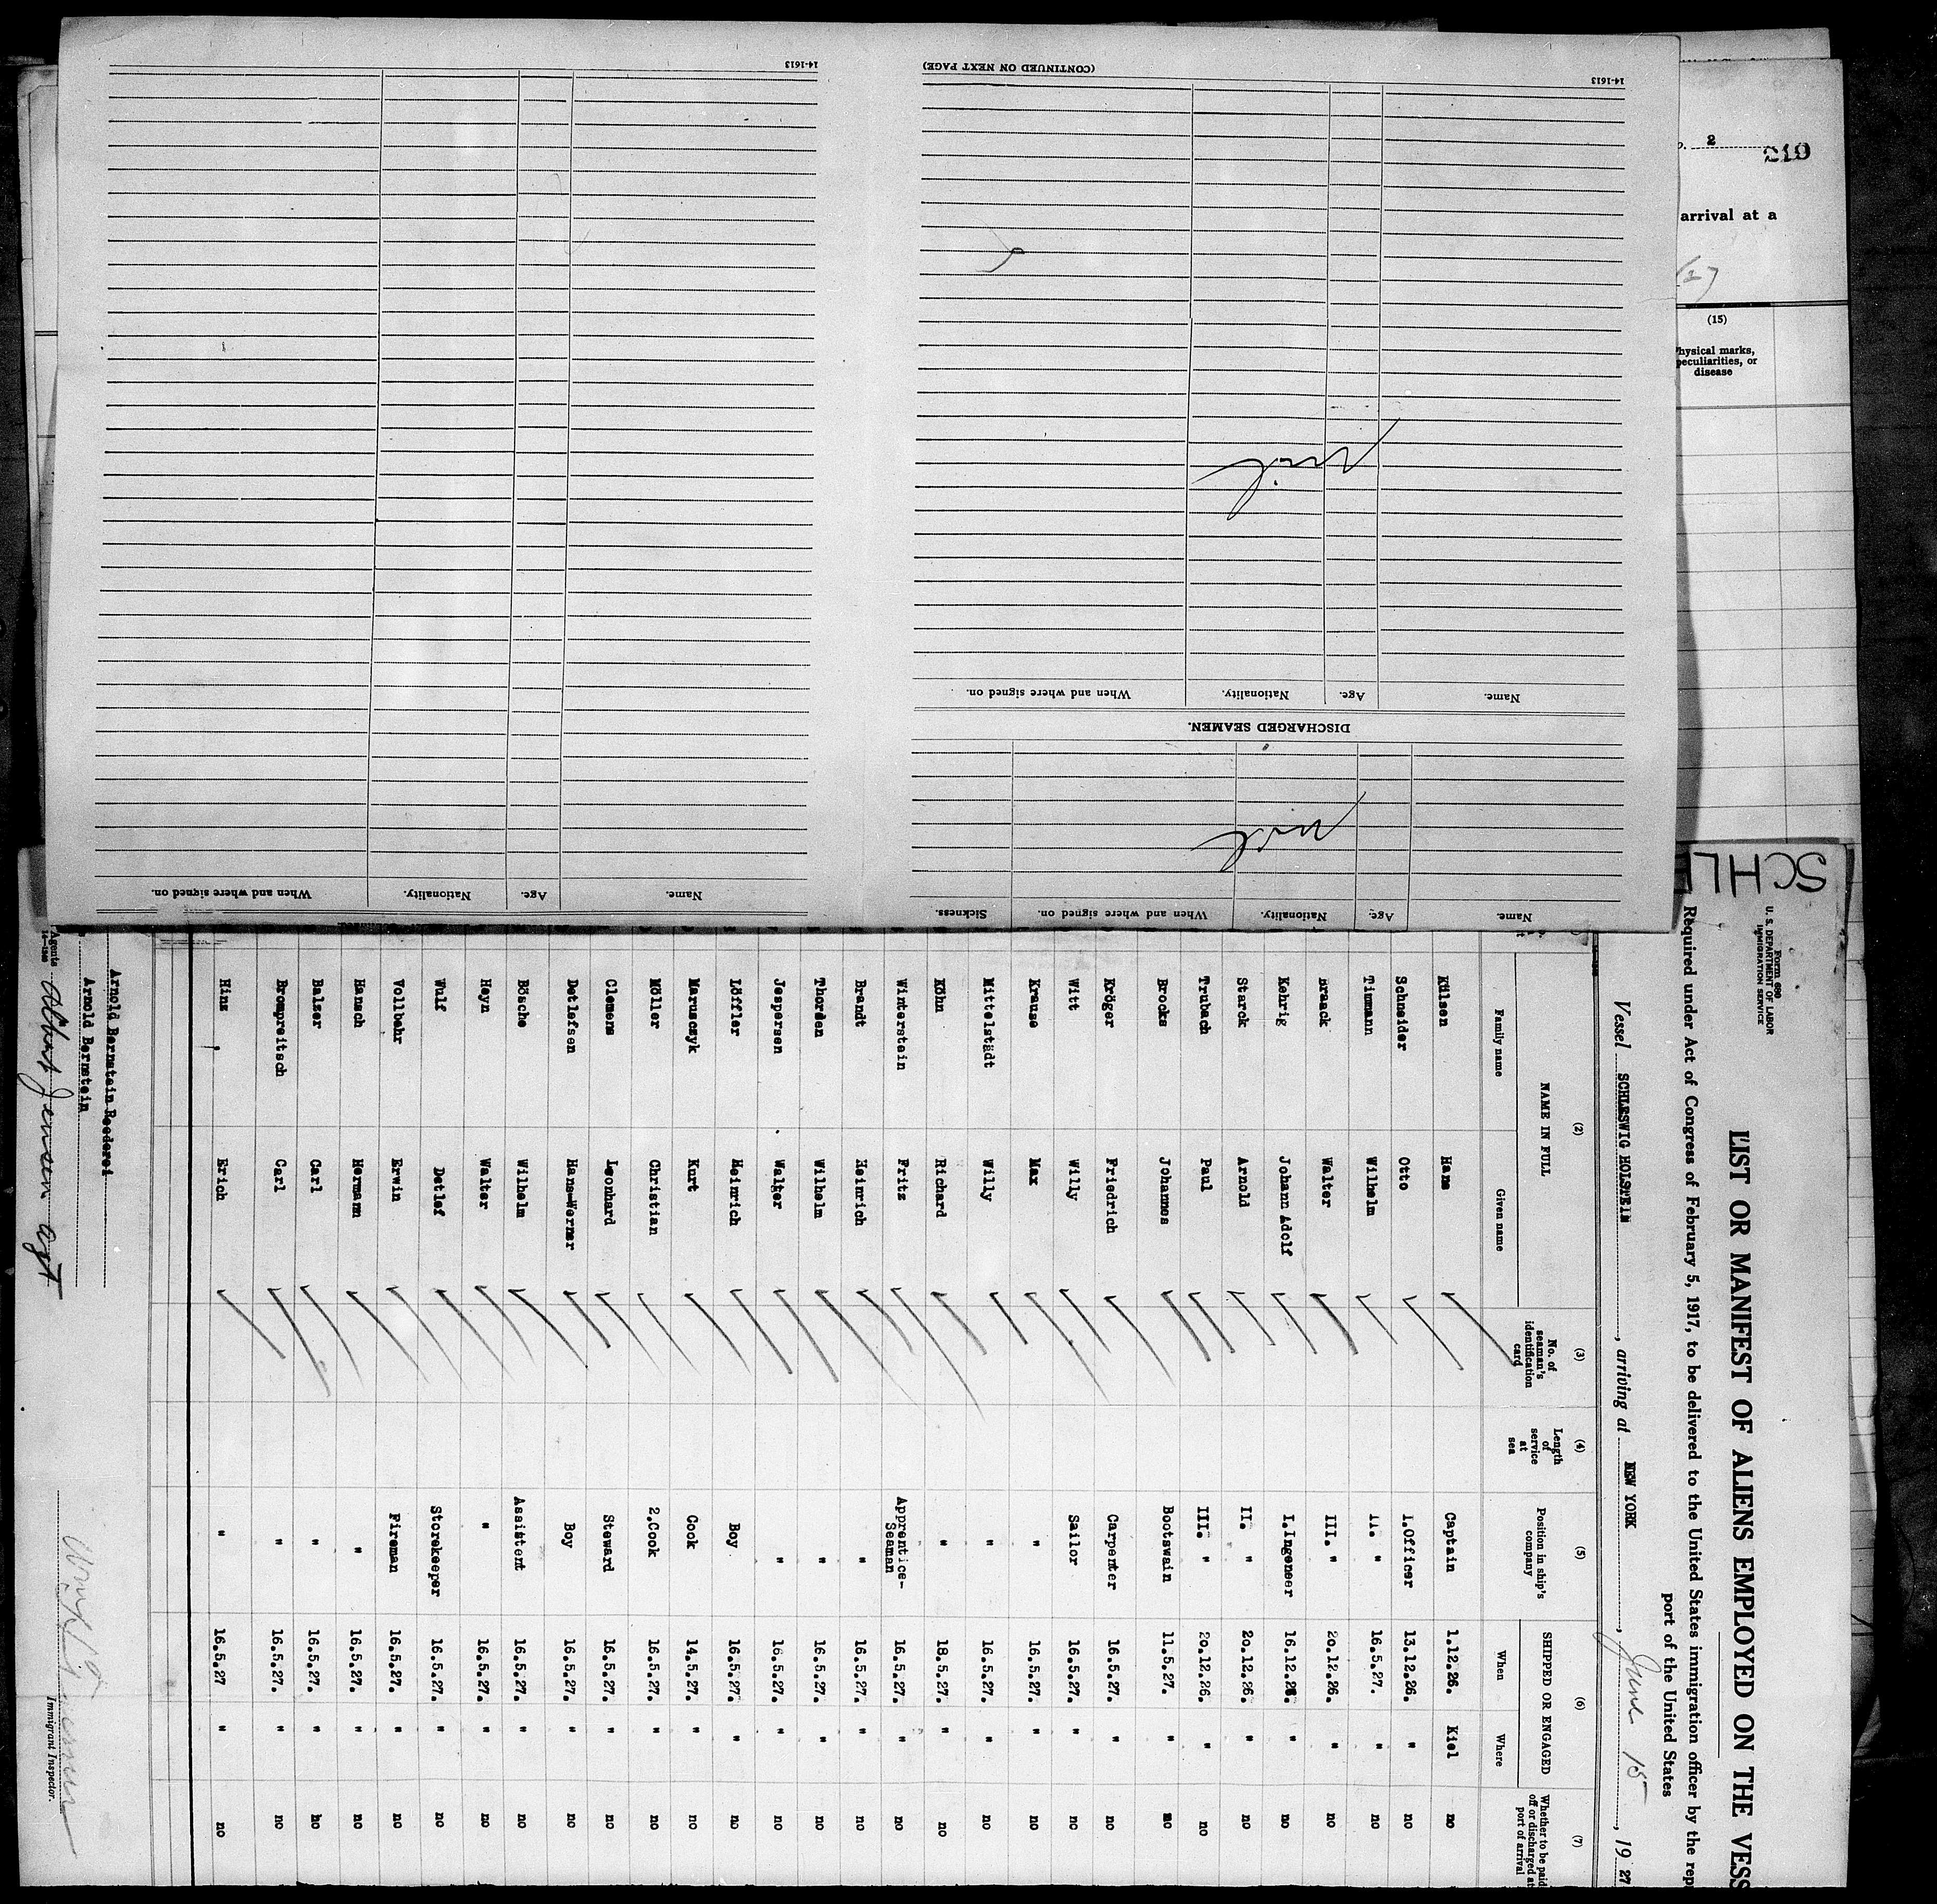 14-1613
(CONTINUED ON NEXT PAGE)
14-1613
nil
Name. Age. Nationality. When and where signed on.
DISCHARGED SEAMEN.
nil
Name. Age. Nationality. When and where signed on. Sickness.
Name. Age. Nationality. When and where signed on.
2
219
arrival at a
(15)
Physical marks, peculiarities, or disease
SCHL
Form 680
U. S. DEPARTMENT OF LABOR
IMMIGRATION SERVICE
LIST OR MANIFEST OF ALIENS EMPLOYED ON THE VESS
Required under Act of Congress of February 5, 1917, to be delivered to the United States immigration officer by the rep
port of the United States
Vessel SCHLESWIG HOLSTEIN, arriving at NEW YORK, June 15, 1927
(2) (3) (4) (5) (6) (7)
NAME IN FULL
Family name Given name
No. of seaman's identification card
Length of service at sea
Position in ship's company
SHIPPED OR ENGAGED
When Where
Whether to be paid off or discharged at port of arrival
Külsen Hans Captain 1.12.26. Kiel no
Schneider Otto I.Officer 13.12.26. " no
Timmann Wilhelm II. " 16.5.27. " no
Braack Walter III. " 20.12.26. " no
Kehrig Johann Adolf I.Ingeneer 16.12.26. " no
Starck Arnold II. " 20.12.26. " no
Trubach Paul III. " 20.12.26. " no
Brooks Johannes Bootswain 11.5.27. " no
Kröger Friedrich Carpenter 16.5.27. no
Witt Willy Sailor 16.5.27. " no
Krause Max " 16.5.27. " no
Mittelstädt Willy " 16.5.27. " no
Köhn Richard " 18.5.27. " no
Winterstein Fritz Apprentice-Seaman 16.5.27. " no
Brandt Heinrich " 16.5.27. " no
Thorden Wilhelm " 16.5.27. " no
Jespersen Walter " 16.5.27. " no
Löffler Heinrich Boy 16.5.27. " no
Marusczyk Kurt Cook 14.5.27. " no
Möller Christian 2.Cook 16.5.27. " no
Clemens Leonhard Steward 16.5.27. " no
Detlefsen Hans-Werner Boy 16.5.27. " no
Bösche Wilhelm Assistent 16.5.27. " no
Heyn Walter " 16.5.27. " no
Wulf Detlef Storekeeper 16.5.27. " no
Vollbehr Erwin Fireman 16.5.27. " no
Hansch Hermann " 16.5.27. " no
Balzer Carl " 16.5.27. " no
Brompreitsch Carl " 16.5.27. " no
Hinz Erich " 16.5.27 " no
Arnold Bernstein Reederei
Arnold Bernstein
Agents Albert Jensen agt
Immigrant Inspector.